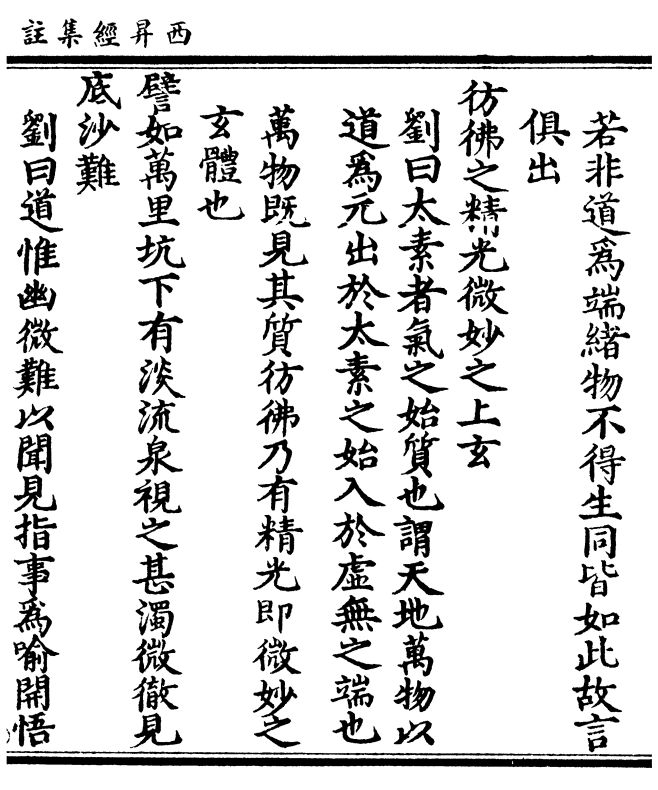 西昇經集註
若非道爲端緒物不得生同皆如此故言
俱出
彷彿之精光微妙之上玄
劉曰太素者氣之始質也謂天地萬物以
道爲元出於太素之始入於虛無之端也
萬物既見其質彷彿乃有精光即微妙之
玄體也
譬如萬里坑下有淡流泉視之甚濁微徹見
底沙難
劉曰道惟幽微難以聞見指事爲喻開悟